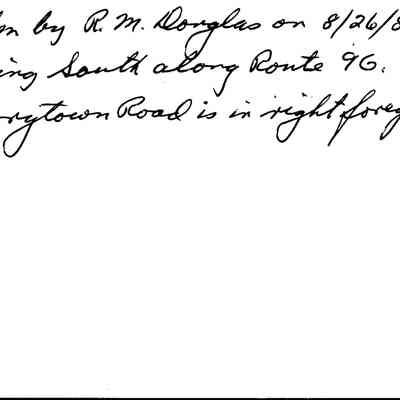 by R. M. Douglas on 8/26/8
ing South along Route 96.
rytown Road is in right foreg